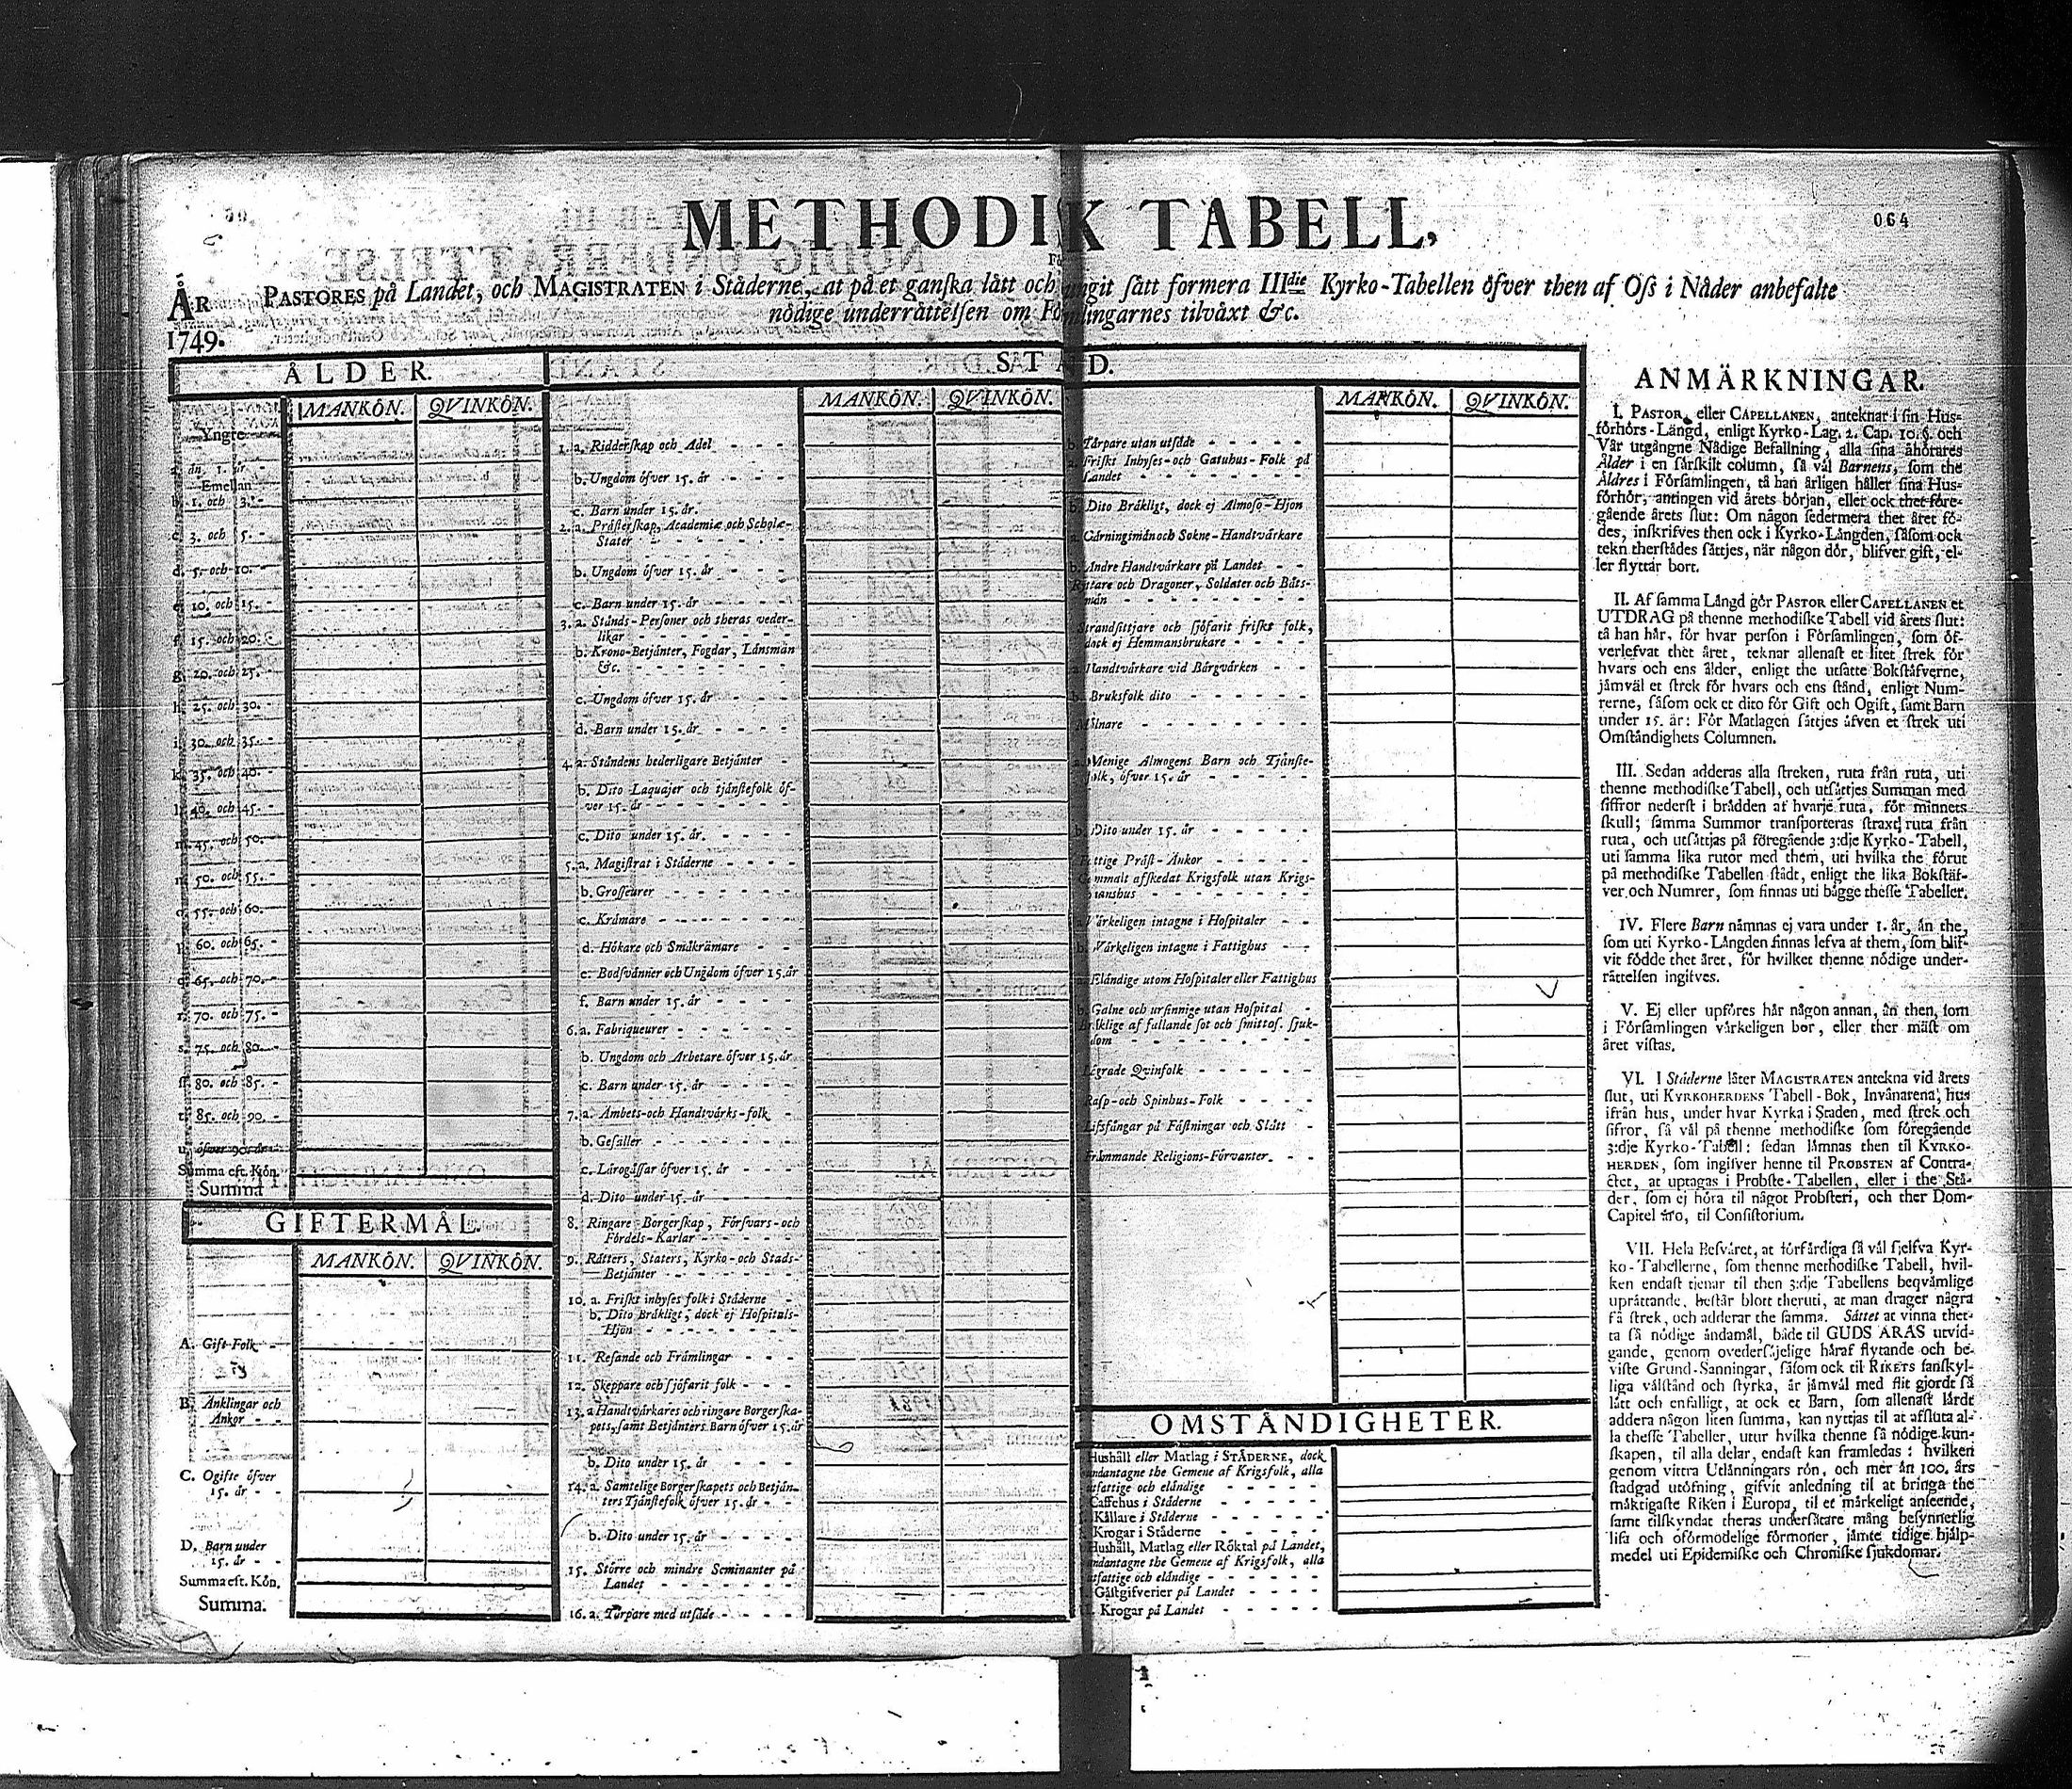 METHODIK TABELL,
064
ÅR
1749.
PASTORES på Landet, och MAGISTRATEN i Ståderne, at på et ganſka lått och ſått formera IIIdie Kyrko-Tabellen ôfver then af Oſs i Nåder anbefalte
nôdige underråttelſen om tilvåxt &c.
ÅLDER.
MANKÔN. QVINKÔN.
Yngre
a. ån 1. år -
Emellan
b. 1. och 3. -
c. 3. och 5. -
d. 5. och 10. -
e. 10. och 15. -
f. 15. och 20.
g. 20. och 25.
h. 25. och 30.
i. 30. och 35. -
k. 35. och 40.
l. 40. och 45.
m. 45. och 50.
n. 50. och 55.
o. 55. och 60.
p. 60. och 65.
q. 65. och 70.
r. 70. och 75. -
s. 75. och 80.
ſſ. 80. och 85. -
t. 85. och 90. -
u. ôfver 90. år -
Summa eft. Kôn.
Summa
GIFTERMÅL.
MANKÔN. QVINKÔN.
A. Gift-Folk -
B. Ånklingar och
Ånkor - -
C. Ogifte ôfver
15. år - -
D. Barn under
15. år - -
Summa eft. Kôn.
Summa.
STÅND.
MANKÔN. QVINKÔN.
1. a. Ridderſkap och Adel - - - -
b. Ungdom ôfver 15. år - - - -
c. Barn under 15. år. - - - -
2. a. Pråſterſkap, Academiæ och Scholæ-
Stater - - - - - -
b. Ungdom ôfver 15. år - - - -
c. Barn under 15. år - - - -
3. a. Stånds-Perſoner och theras veder-
likar - - - - - -
b. Krono-Betjånter, Fogdar, Lånsmån
&c. - - - - - -
c. Ungdom ôfver 15. år - - - -
d. Barn under 15. år - - - -
4. a. Ståndens hederligare Betjånter -
b. Dito Laquajer och tjånſtefolk ôf-
ver 15. år - - - - - -
c. Dito under 15. år. - - - -
5. a. Magiſtrat i Ståderne - - - -
b. Groſſeurer - - - - - -
c. Kråmare - - - - - -
d. Hôkare och Småkråmare - -
e. Bodſvånner och Ungdom ôfver 15. år
f. Barn under 15. år - - - -
6. a. Fabriqueurer - - - - - -
b. Ungdom och Arbetare ôfver 15. år
c. Barn under 15. år - - - -
7. a. Åmbets-och Handtvårks-folk -
b. Geſåller - - - - - -
c. Lårogåſſar ôfver 15. år - - -
d. Dito under 15. år - - - -
8. Ringare Borgerſkap, Fôrſvars-och
Fôrdels-Karlar - - - - -
9. Råtters, Staters, Kyrko-och Stads-
Betjånter - - - - - -
10. a. Friſkt inhyſes folk i Ståderne -
b. Dito Bråkligt, dock ej Hoſpitals-
Hjon - - - - - -
11. Reſande och Fråmlingar - - -
12. Skeppare och ſjôfarit folk - - -
13. a. Handtvårkares och ringare Borgerſka-
pets, ſamt Betjånters Barn ôfver 15. år
b. Dito under 15. år - - - -
14. a. Samtelige Borgerſkapets och Betjån-
ters Tjånſtefolk ôfver 15. år - -
b. Dito under 15. år - - - -
15. Stôrre och mindre Seminanter på
Landet - - - - - -
16. a. Torpare med utſåde - - - -
MANKÔN. QVINKÔN.
b. Torpare utan utſåde - - - - -
a. Friſkt Inhyſes-och Gatuhus-Folk på
Landet - - - - - -
b. Dito Bråkligt, dock ej Almoſo-Hjon
a. Gårningsmån och Sokne-Handtvårkare
b. Andre Handtvårkare på Landet - -
Ryttare och Dragoner, Soldater och Båts-
mån - - - - - -
Strandſittjare och ſjôfarit friſkt folk,
dock ej Hemmansbrukare - - -
a. Handtvårkare vid Bårgvårken - -
b. Bruksfolk dito - - - - -
Môlnare - - - - - -
a. Menige Almogens Barn och Tjånſte-
folk, ôfver 15. år - - - -
b. Dito under 15. år - - - - -
Fattige Pråſt-Ånkor - - - -
Gammalt afſkedat Krigsfolk utan Krigs-
manshus - - - - - -
a. Vårkeligen intagne i Hoſpitaler - -
b. Vårkeligen intagne i Fattighus - -
a. Elåndige utom Hoſpitaler eller Fattighus
b. Galne och urſinnige utan Hoſpital -
Bråklige af fallande ſot och ſmittoſ. ſjuk-
dom - - - - - -
Lågrade Qvinfolk - - - - -
Raſp-och Spinhus-Folk - - - -
Lifsfångar på Fåſtningar och Slått -
Fråmmande Religions-Fôrvanter. - -
OMSTÅNDIGHETER.
Hushåll eller Matlag i STÅDERNE, dock
undantagne the Gemene af Krigsfolk, alla
utfattige och elåndige - - - -
Caffehus i Ståderne - - - -
Kållare i Ståderne - - - -
Krogar i Ståderne - - - -
Hushåll, Matlag eller Rôktal på Landet,
undantagne the Gemene af Krigsfolk, alla
utfattige och elåndige - - - -
Gåſtgifverier på Landet - - - -
Krogar på Landet - - - -
ANMÄRKNINGAR.
I. PASTOR, eller CAPELLANEN, anteknar i ſin Hus-
fôrhôrs-Långd, enligt Kyrko-Lag. 2. Cap. 10. §. och
Vår utgångne Nådige Befallning, alla ſina åhôrares
Ålder i en ſårſkilt column, ſå vål Barnens, ſom the
Åldres i Fôrſamlingen, tå han årligen håller ſina Hus-
fôrhôr, antingen vid årets bôrjan, eller ock thet fôre-
gående årets ſlut: Om någon ſedermera thet året fô-
des, inſkrifves then ock i Kyrko-Långden, ſåſom ock
tekn therſtådes ſåttjes, når någon dôr, blifver gift, el-
ler flyttar bort.
II. Af ſamma Långd gôr PASTOR eller CAPELLANEN et
UTDRAG på thenne methodiſke Tabell vid årets ſlut:
tå han hår, fôr hvar perſon i Fôrſamlingen, ſom ôf-
verlefvat thet året, teknar allenaſt et litet ſtrek fôr
hvars och ens ålder, enligt the utſatte Bokſtåfverne,
jåmvål et ſtrek fôr hvars och ens ſtånd, enligt Num-
rerne, ſåſom ock et dito fôr Gift och Ogift, ſamt Barn
under 15. år: Fôr Matlagen ſåttjes åfven et ſtrek uti
Omſtåndighets Columnen.
III. Sedan adderas alla ſtreken, ruta från ruta, uti
thenne methodiſke Tabell, och utſåttjes Summan med
ſiffror nederſt i brådden af hvarje ruta, fôr minnets
ſkull; ſamma Summor tranſporteras ſtraxt ruta från
ruta, och utſåttjas på fôregående 3:dje Kyrko-Tabell,
uti ſamma lika rutor med them, uti hvilka the fôrut
på methodiſke Tabellen ſtådt, enligt the lika Bokſtåf-
ver och Numrer, ſom finnas uti bågge theſſe Tabeller.
IV. Flere Barn nåmnas ej vara under 1. år, ån the,
ſom uti Kyrko-Långden finnas lefva af them, ſom blif-
vit fôdde thet året, fôr hvilket thenne nôdige under-
råttelſen ingifves.
V. Ej eller upfôres hår någon annan, ån then, ſom
i Fôrſamlingen vårkeligen bor, eller ther måſt om
året viſtas.
VI. I Ståderne låter MAGISTRATEN antekna vid årets
ſlut, uti KYRKOHERDENS Tabell-Bok, Invånarena, hus
ifrån hus, under hvar Kyrka i Staden, med ſtrek och
ſifror, ſå vål på thenne methodiſke ſom fôregående
3:dje Kyrko-Tabell: ſedan låmnas then til KYRKO-
HERDEN, ſom ingifver henne til PROBSTEN af Contra-
ctet, at uptagas i Probſte-Tabellen, eller i the Ståder,
der, ſom ej hôra til något Probſteri, och ther Dom-
Capitel åro, til Conſiſtorium.
VII. Hela Beſvåret, at fôrfårdiga ſå vål ſjelfva Kyr-
ko-Tabellerne, ſom thenne methodiſke Tabell, hvil-
ken endaſt tjenar til then 3:dje Tabellens beqvåmlige
upråttande, beſtår blott theruti, at man drager några
få ſtrek, och adderar the ſamma. Såttet at vinna thet-
ta ſå nôdige åndamål, både til GUDS ÅRAS utvid-
gande, genom ovederſåjelige håraf flytande och be-
viſte Grund-Sanningar, ſåſom ock til RIKETS ſanſkyl-
liga vålſtånd och ſtyrka, år jåmvål med flit gjordt ſå
lått och enfalligt, at ock et Barn, ſom allenaſt lårdt
addera någon liten ſumma, kan nyttjas til at afſluta al-
la theſſe Tabeller, utur hvilka thenne ſå nôdige kun-
ſkapen, til alla delar, endaſt kan framledas: hvilken
genom vittra Utlånningars rôn, och mer ån 100. års
ſtadgad utôfning, gifvit anledning til at bringa the
måktigaſte Riken i Europa, til et mårkeligt anſeende,
ſamt tilſkyndat theras underſåtare mång beſynnerlig
liſa och ofôrmodelige fôrmoner, jåmte tidige hjålp-
medel uti Epidemiſke och Chroniſke ſjukdomar.